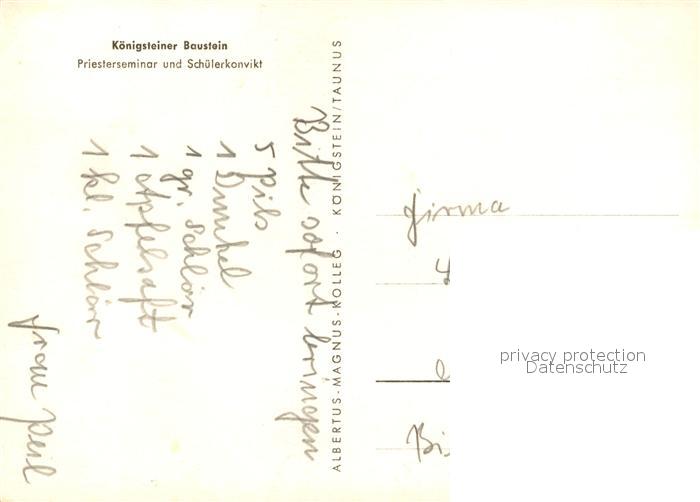 Königsteiner Baustein
Priesterseminar und Schülerkonvikt
ALBERTUS-MAGNUS-KOLLEG · KÖNIGSTEIN/TAUNUS
Bitte sofort bringen
5 Pils
1 Dunkel
1 gr. Schlör
1 Apfelsaft
1 kl. Schlör
Frau Peil
Firma
privacy protection
Datenschutz